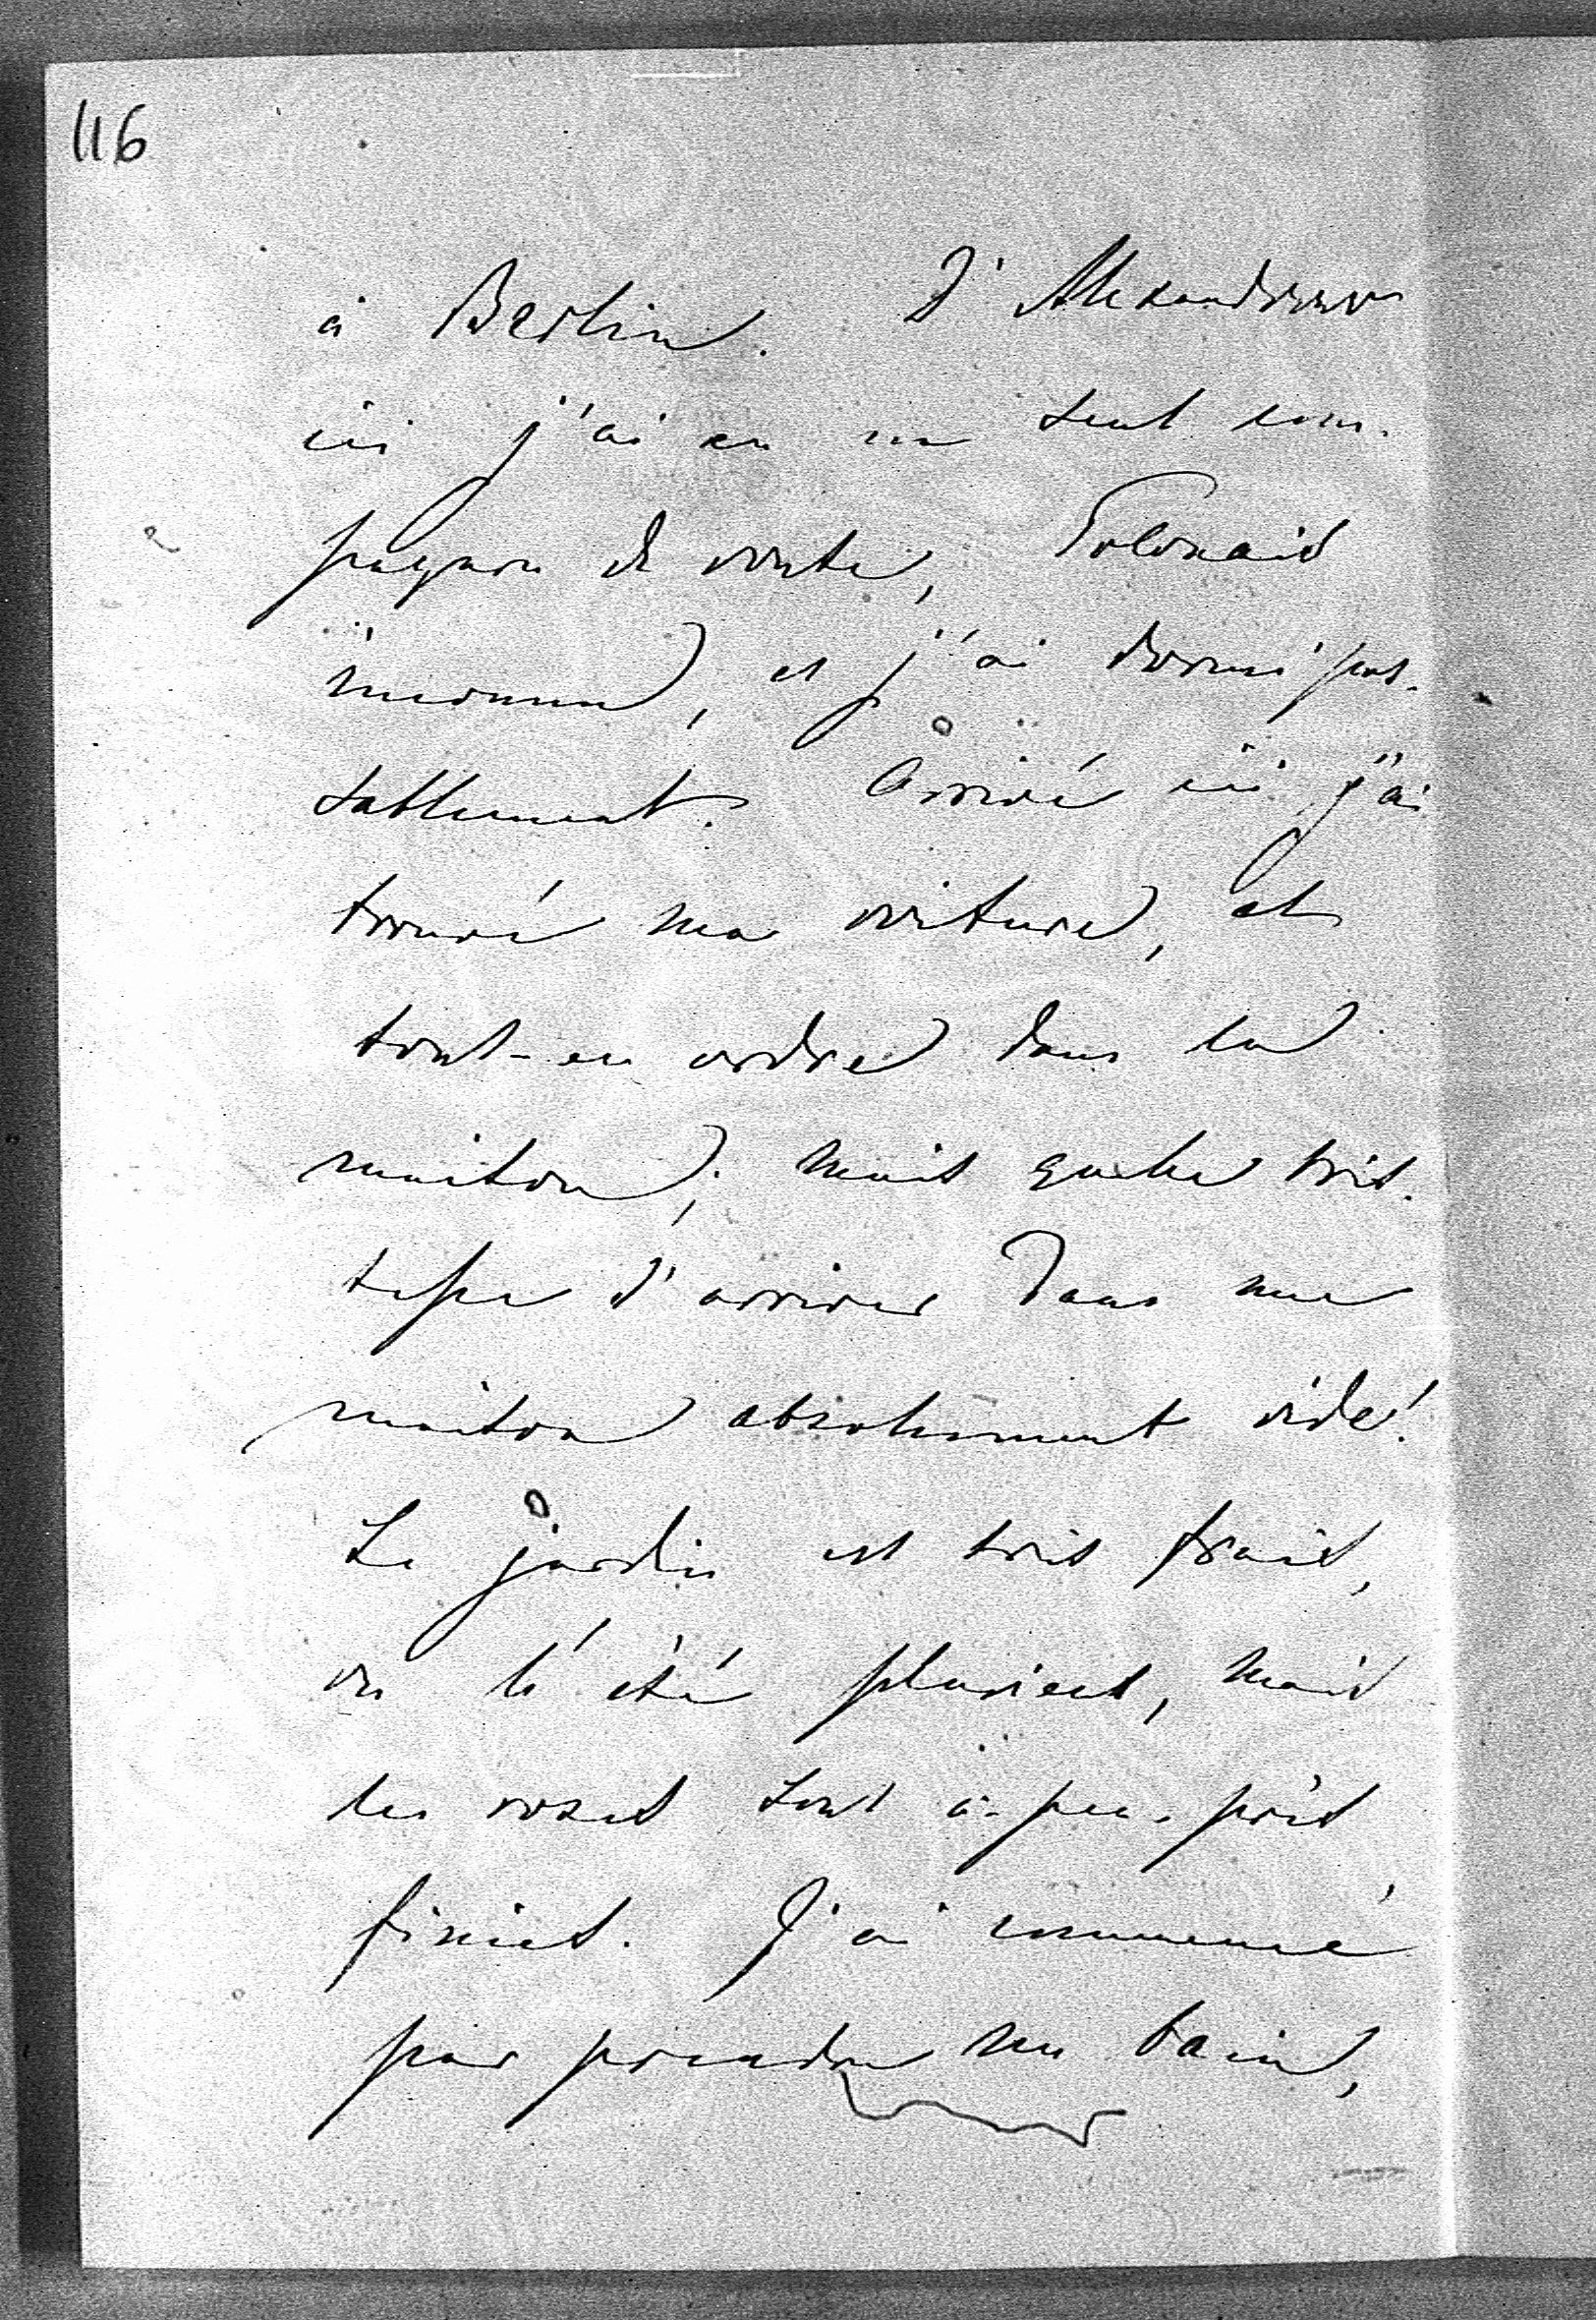 116
à Berlin. D'Alexandrowo
ici j'ai eu un seul com-
pagnon de route, Polonais
inconnu, et j'ai dormi pas-
sablement. Arrivé ici j'ai
trouvé ma voiture, et
tout-en ordre dans la
maison; mais quelle tris-
tesse d'arriver dans une
maison absolument vide!
Le jardin est très frais,
vu l'été pluvieux, mais
les roses sont à-peu-près
finies. J'ai commencé
par prendre un bain,